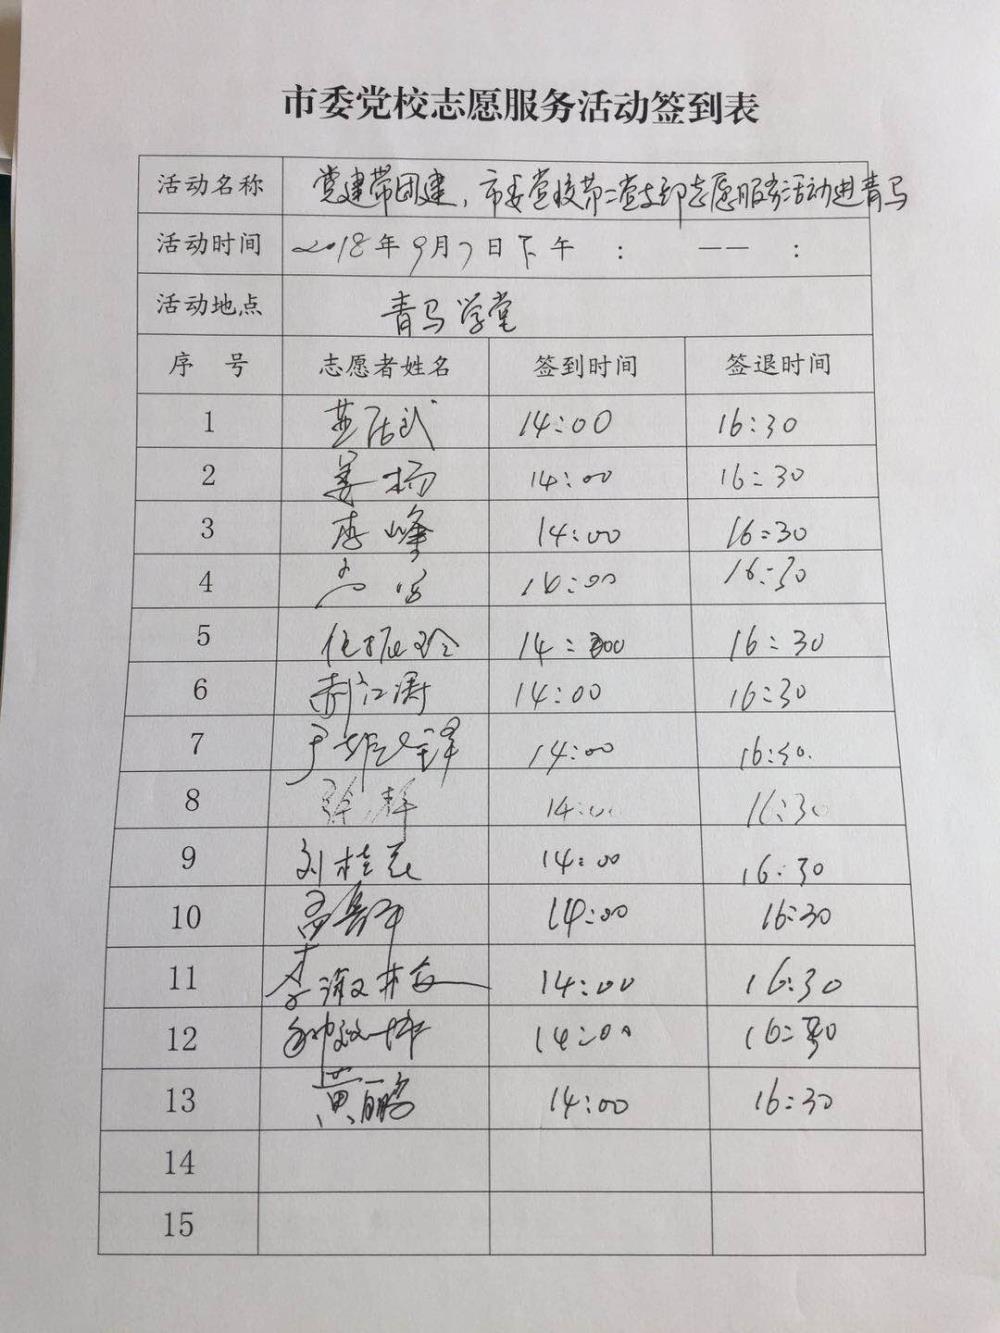 市委党校志愿服务活动签到表
活动名称 党建带团建，市委党校第二党支部志愿服务活动进青马
活动时间 2018年9月7日下午 : —— :
活动地点 青马学堂
序 号 志愿者姓名 签到时间 签退时间
1 14:00 16:30
2 姜杨 14:00 16:30
3 李峰 14:00 16:30
4 14:00 16:30
5 任振玲 14:00 16:30
6 郝江涛 14:00 16:30
7 14:00 16:30.
8 徐静 14:00 16:30
9 刘桂花 14:00 16:30
10 14:00 16:30
11 14:00 16:30
12 14:00 16:30
13 黄丽鹏 14:00 16:30
14
15